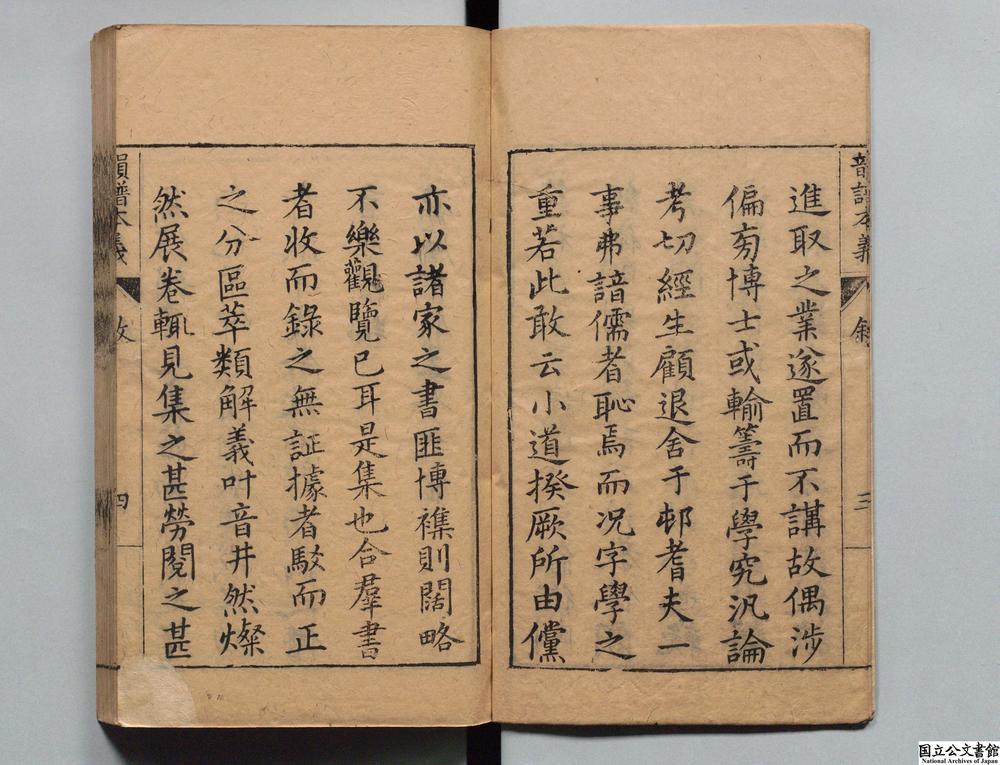 音譜本義
敘
三
進取之業遂置而不講故偶涉
偏旁博士或輸籌于學究汎論
考切經生顧退舍于邨耆夫一
事弗諳儒者恥焉而况字學之
重若此敢云小道揆厥所由儻
亦以諸家之書匪博襍則闊略
不樂觀覽已耳是集也合羣書
者收而錄之無証據者駁而正
之分區萃類解義叶音井然燦
然展卷輒見集之甚勞閱之甚
韻譜本義
四
国立公文書館
National Archives of Japan